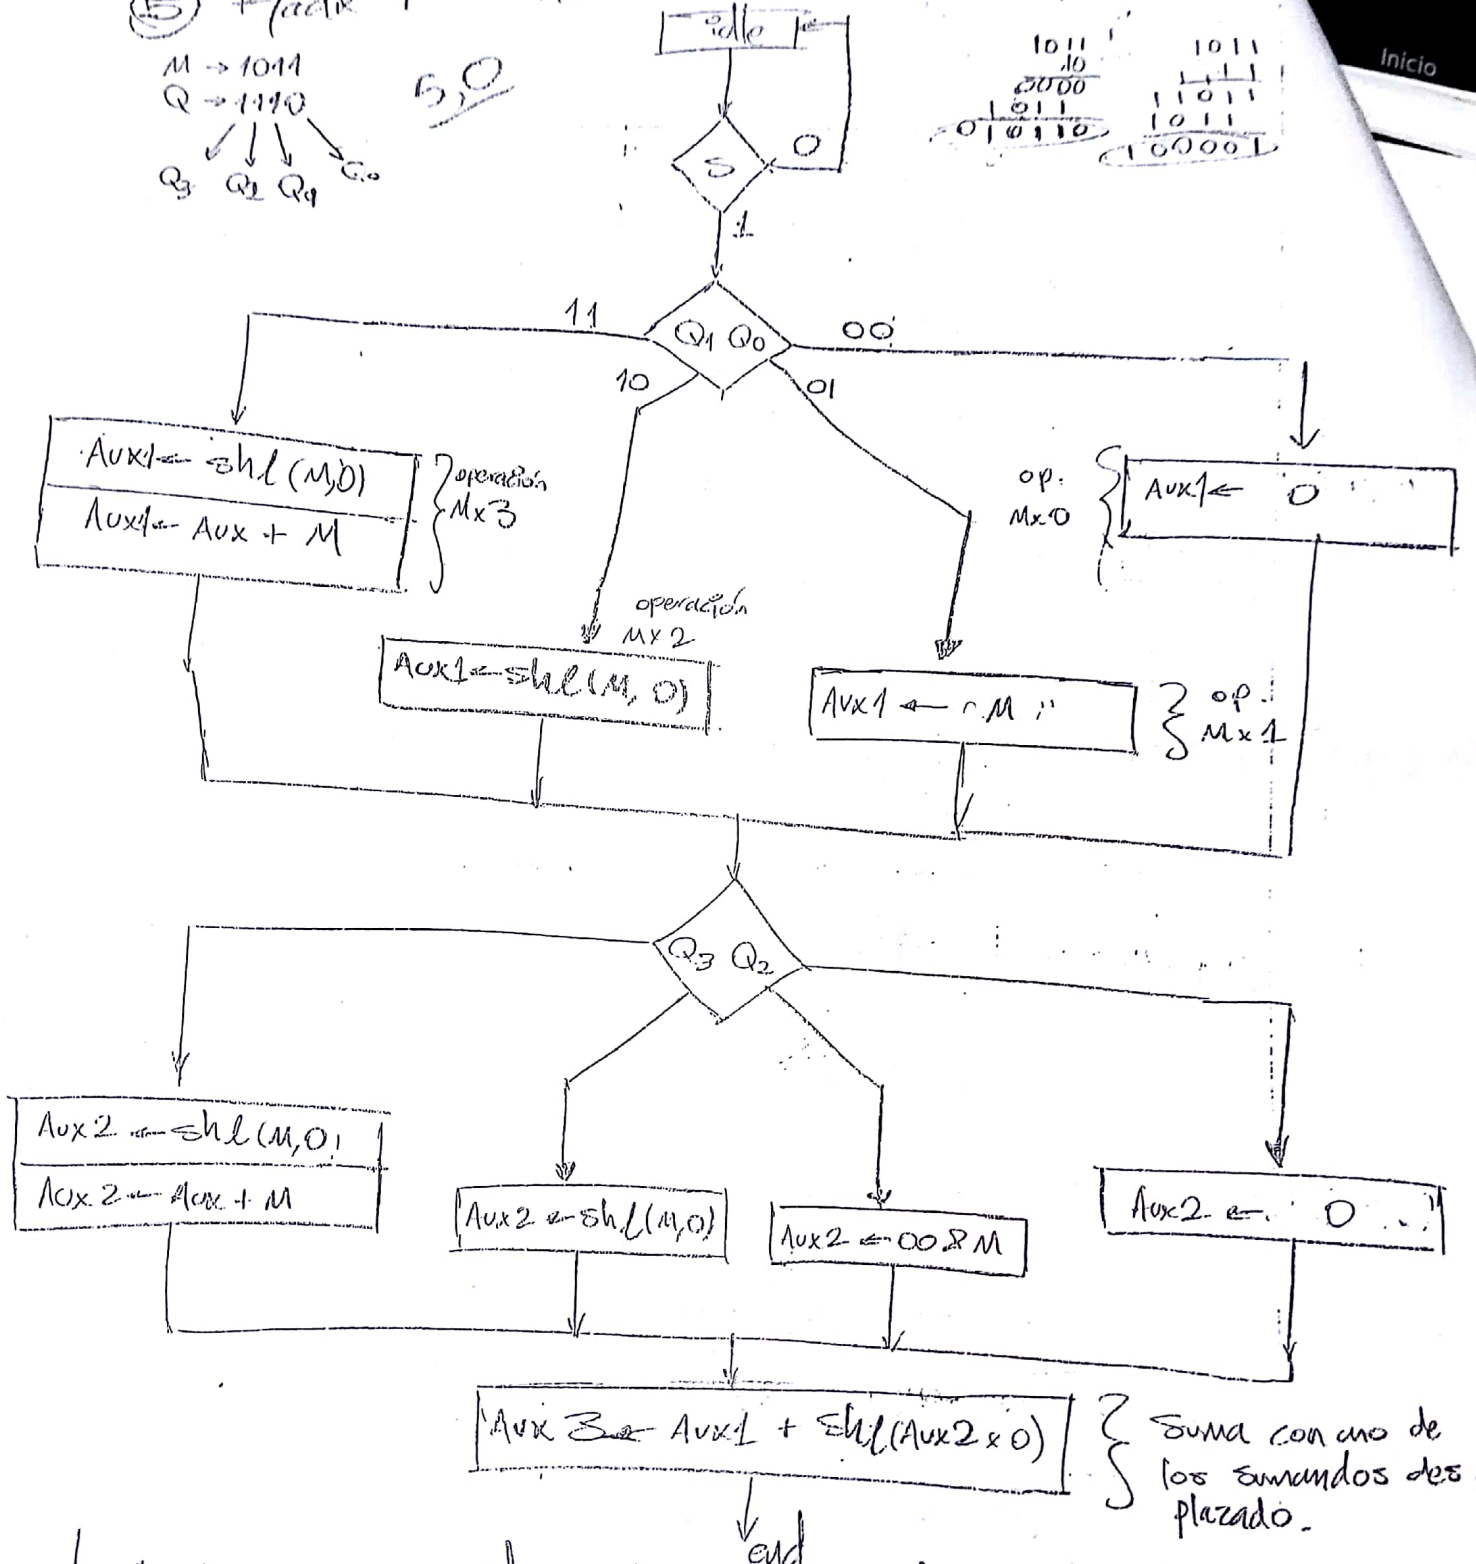 5
idle
Inicio
M → 1011
Q → 1110
5,0
Q3 Q2 Q1 Q0
1011
10
0000
1011
010110
1011
11
11011
1011
100001
S
0
1
Q1 Q0
11
00
10
01
Aux1← shl(M,0)
Aux1← Aux + M
operación
Mx3
op.
Mx0
Aux1← 0
operación
Mx2
Aux1←shl(M,0)
Aux1 ← M
op.
Mx1
Q3 Q2
Aux2 ← shl(M,0)
Aux2 ← Aux + M
Aux2 ← shl(M,0)
Aux2 ← 00 & M
Aux2 ← 0
Aux 3← Aux1 + shl(Aux2 x 0)
Suma con uno de
los sumandos des
plazado.
end